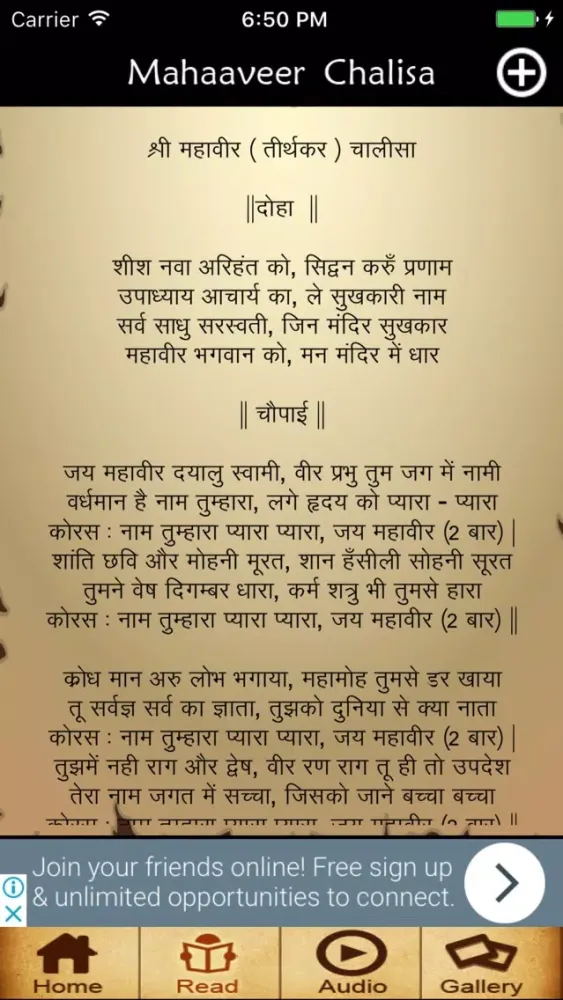 Carrier 6:50 PM
Mahaaveer Chalisa
श्री महावीर ( तीर्थकर ) चालीसा
||दोहा ||
शीश नवा अरिहंत को, सिद्वन करुँ प्रणाम
उपाध्याय आचार्य का, ले सुखकारी नाम
सर्व साधु सरस्वती, जिन मंदिर सुखकार
महावीर भगवान को, मन मंदिर में धार
|| चौपाई ||
जय महावीर दयालु स्वामी, वीर प्रभु तुम जग में नामी
वर्धमान है नाम तुम्हारा, लगे हृदय को प्यारा - प्यारा
कोरस : नाम तुम्हारा प्यारा प्यारा, जय महावीर (2 बार) |
शांति छवि और मोहनी मूरत, शान हँसीली सोहनी सूरत
तुमने वेष दिगम्बर धारा, कर्म शत्रु भी तुमसे हारा
कोरस : नाम तुम्हारा प्यारा प्यारा, जय महावीर (2 बार) ||
क्रोध मान अरु लोभ भगाया, महामोह तुमसे डर खाया
तू सर्वज्ञ सर्व का ज्ञाता, तुझको दुनिया से क्या नाता
कोरस : नाम तुम्हारा प्यारा प्यारा, जय महावीर (2 बार) |
तुझमें नही राग और द्वेष, वीर रण राग तू ही तो उपदेश
तेरा नाम जगत में सच्चा, जिसको जाने बच्चा बच्चा
Join your friends online! Free sign up
& unlimited opportunities to connect.
Home Read Audio Gallery